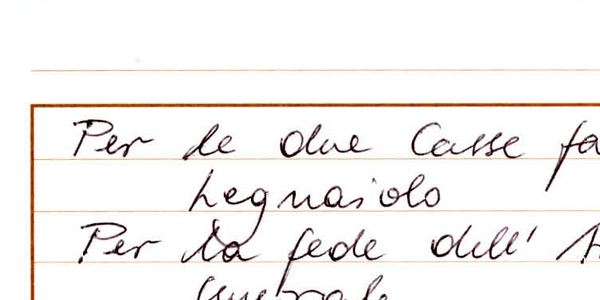 Per le due Casse fa
Legnaiolo
Per la fede dell'